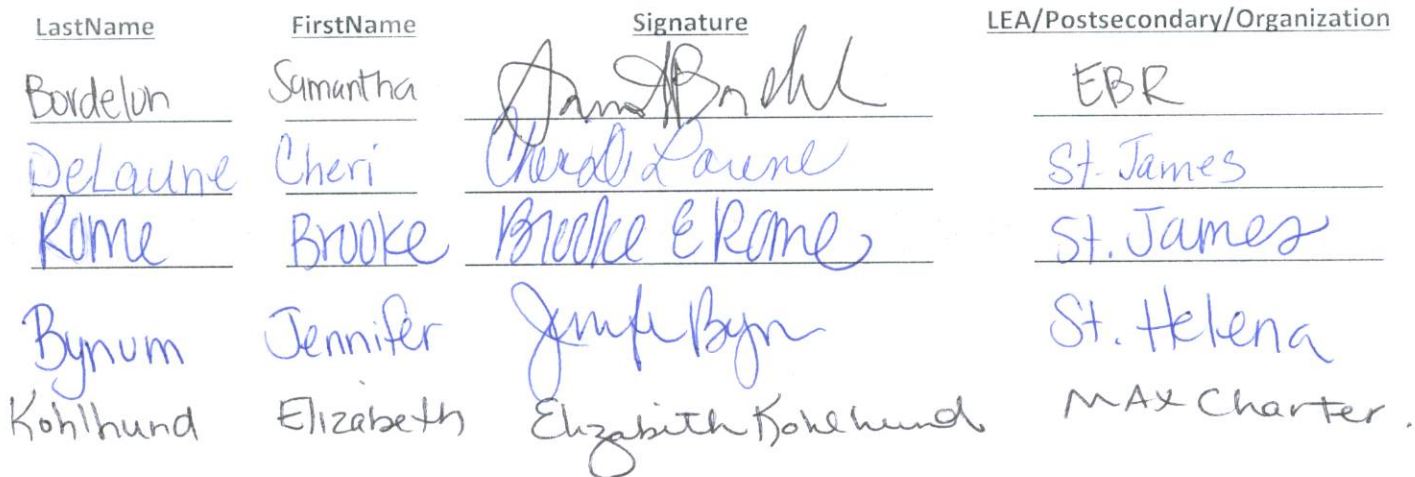 LastName FirstName Signature LEA/Postsecondary/Organization
Bordelon Samantha EBR
DeLaune Cheri St. James
Rome Brooke Brooke E Rome St. James
Bynum Jennifer St. Helena
Kohlhund Elizabeth Elizabeth Kohlhund MAX Charter.